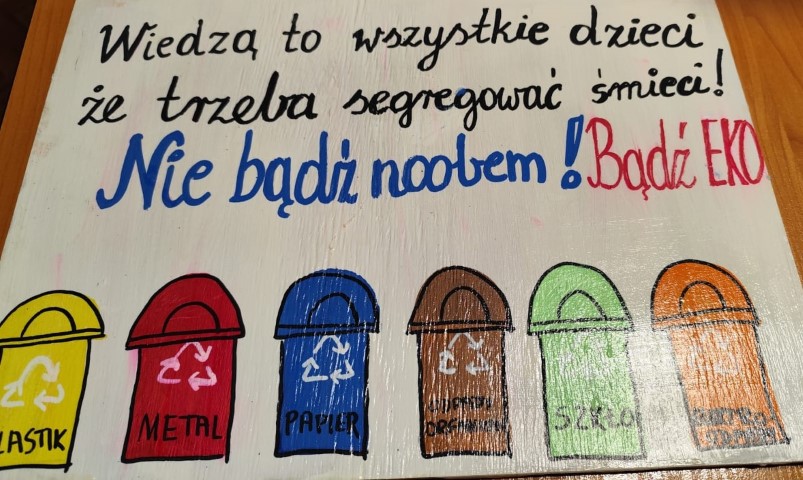 Wiedzą to wszystkie dzieci
że trzeba segregować śmieci!
Nie bądź noobem! Bądź EKO
LASTIK
METAL
PAPIER
SZKŁO